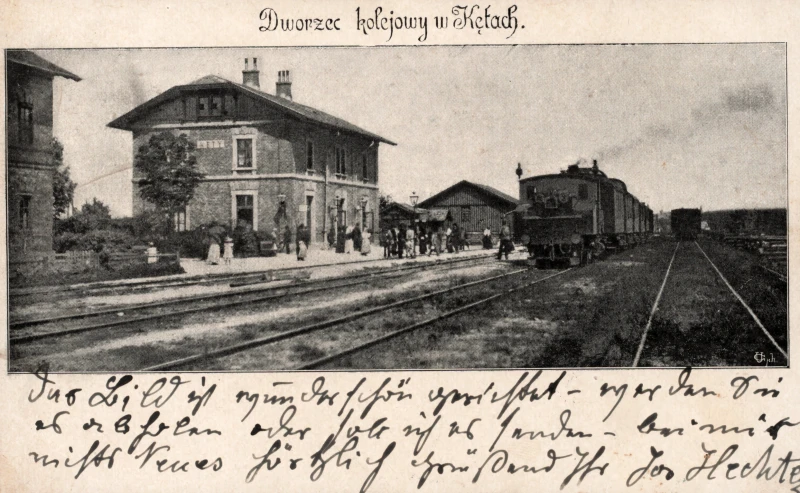 Dworzec kolejowy w Kętach.
KĘTY
das Bild ist wunderschön gerichtet – werden Sie
es abholen oder soll ich es senden – bei mir
nichts Neues herzlich grüßend Ihr Jos Hechter